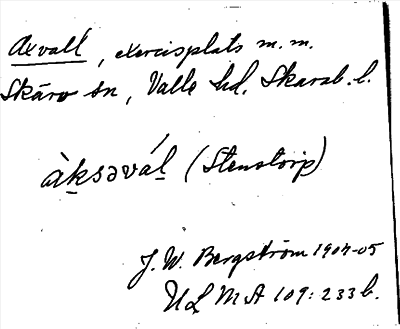 Axvall, exercisplats m.m.
Skärv sn, Valle hd. Skarab. l.
àksəvál (Stenstorp)
J. W. Bergström 1904-05
ULMA 109:233 b.